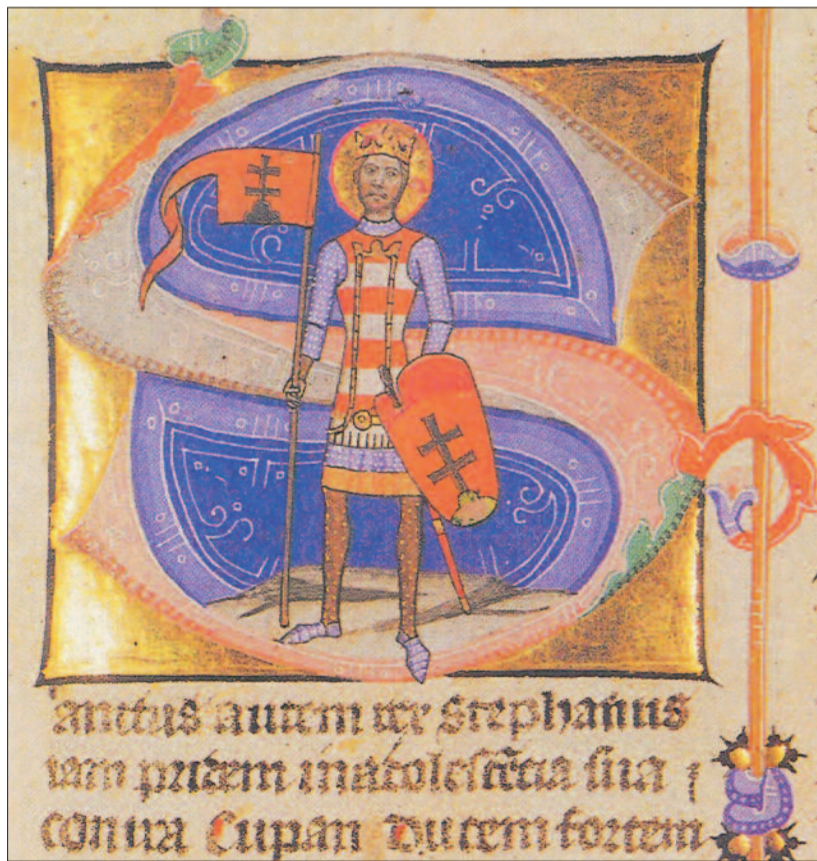 Sanctus autem rex Stephanus
iam pridem in adolescẽcia sua
contra Cupan Ducem fortem